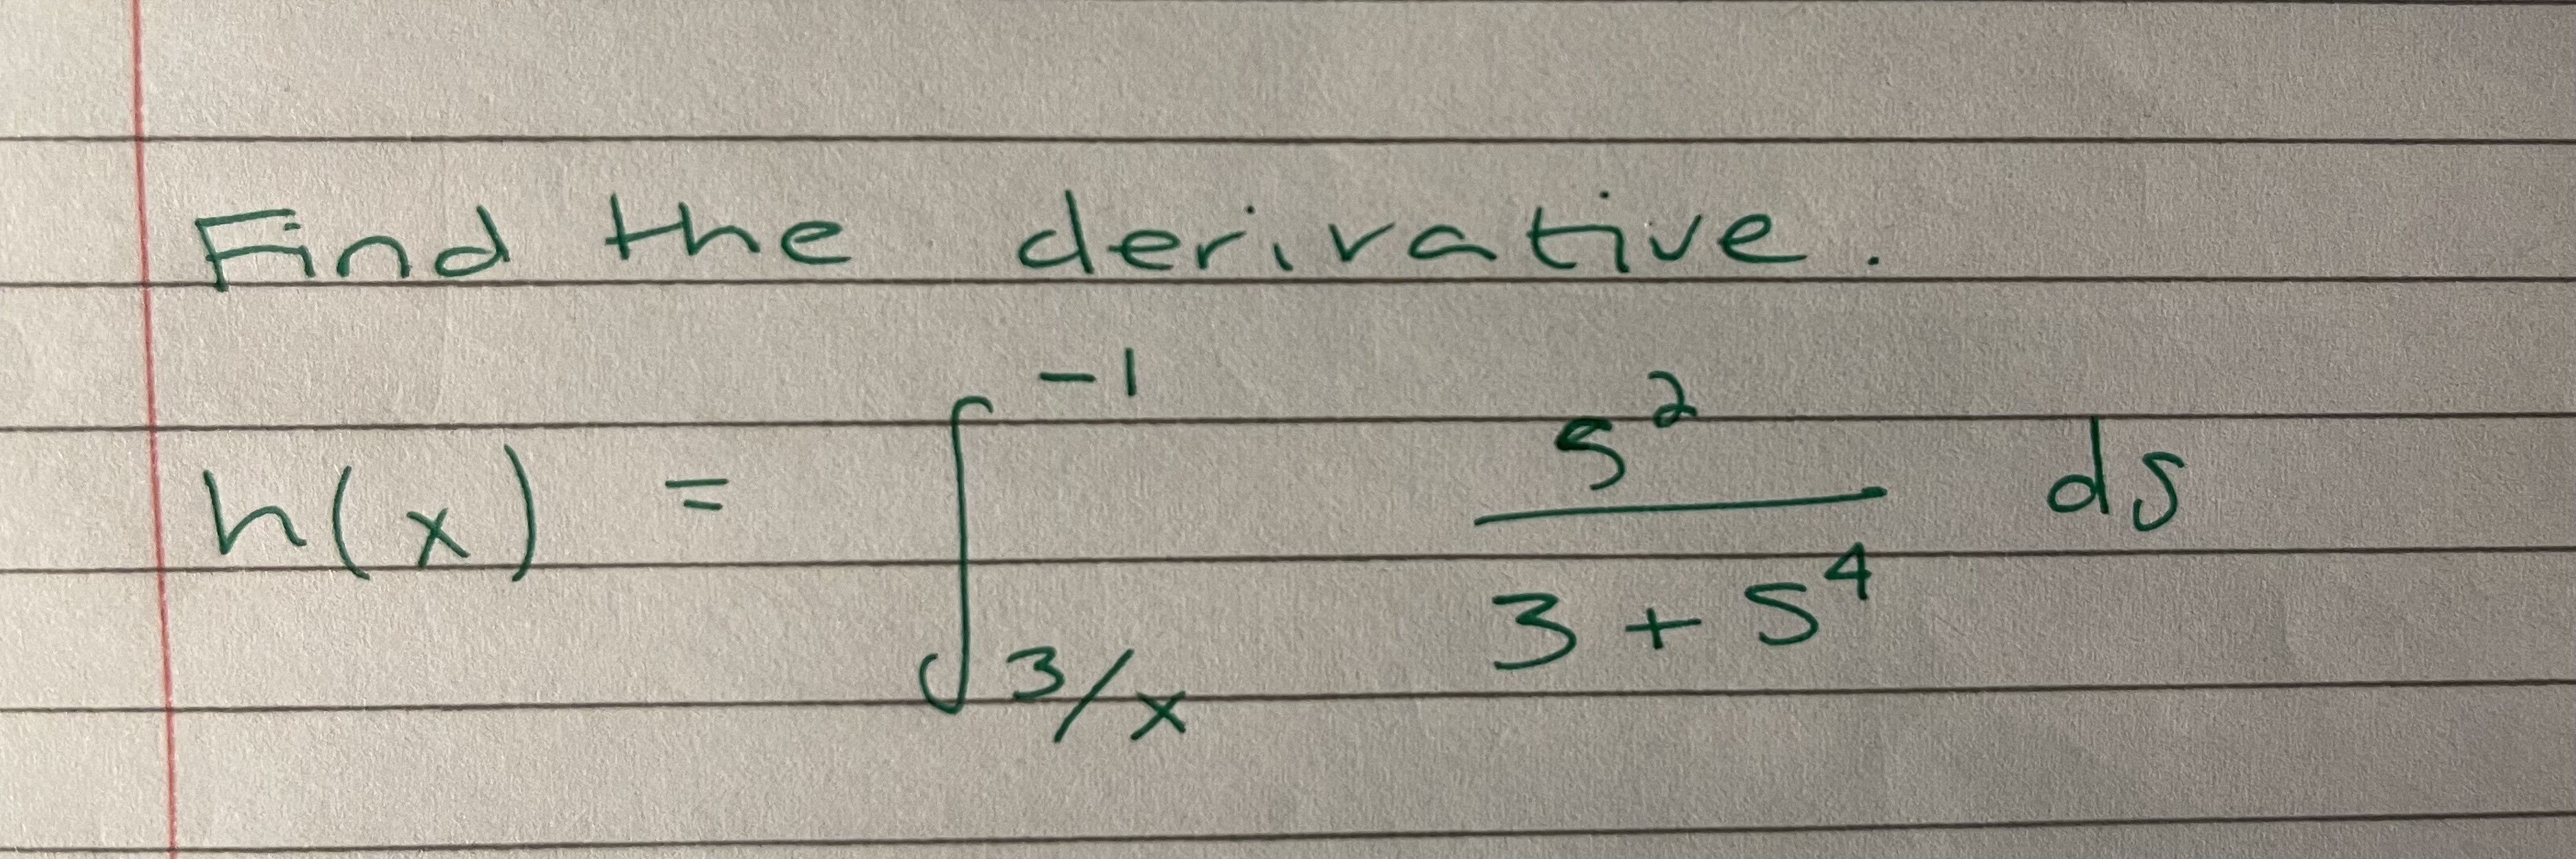 Find the derivative.
h(x) = ∫_{3/x}^{-1} \frac{s^2}{3 + s^4} ds